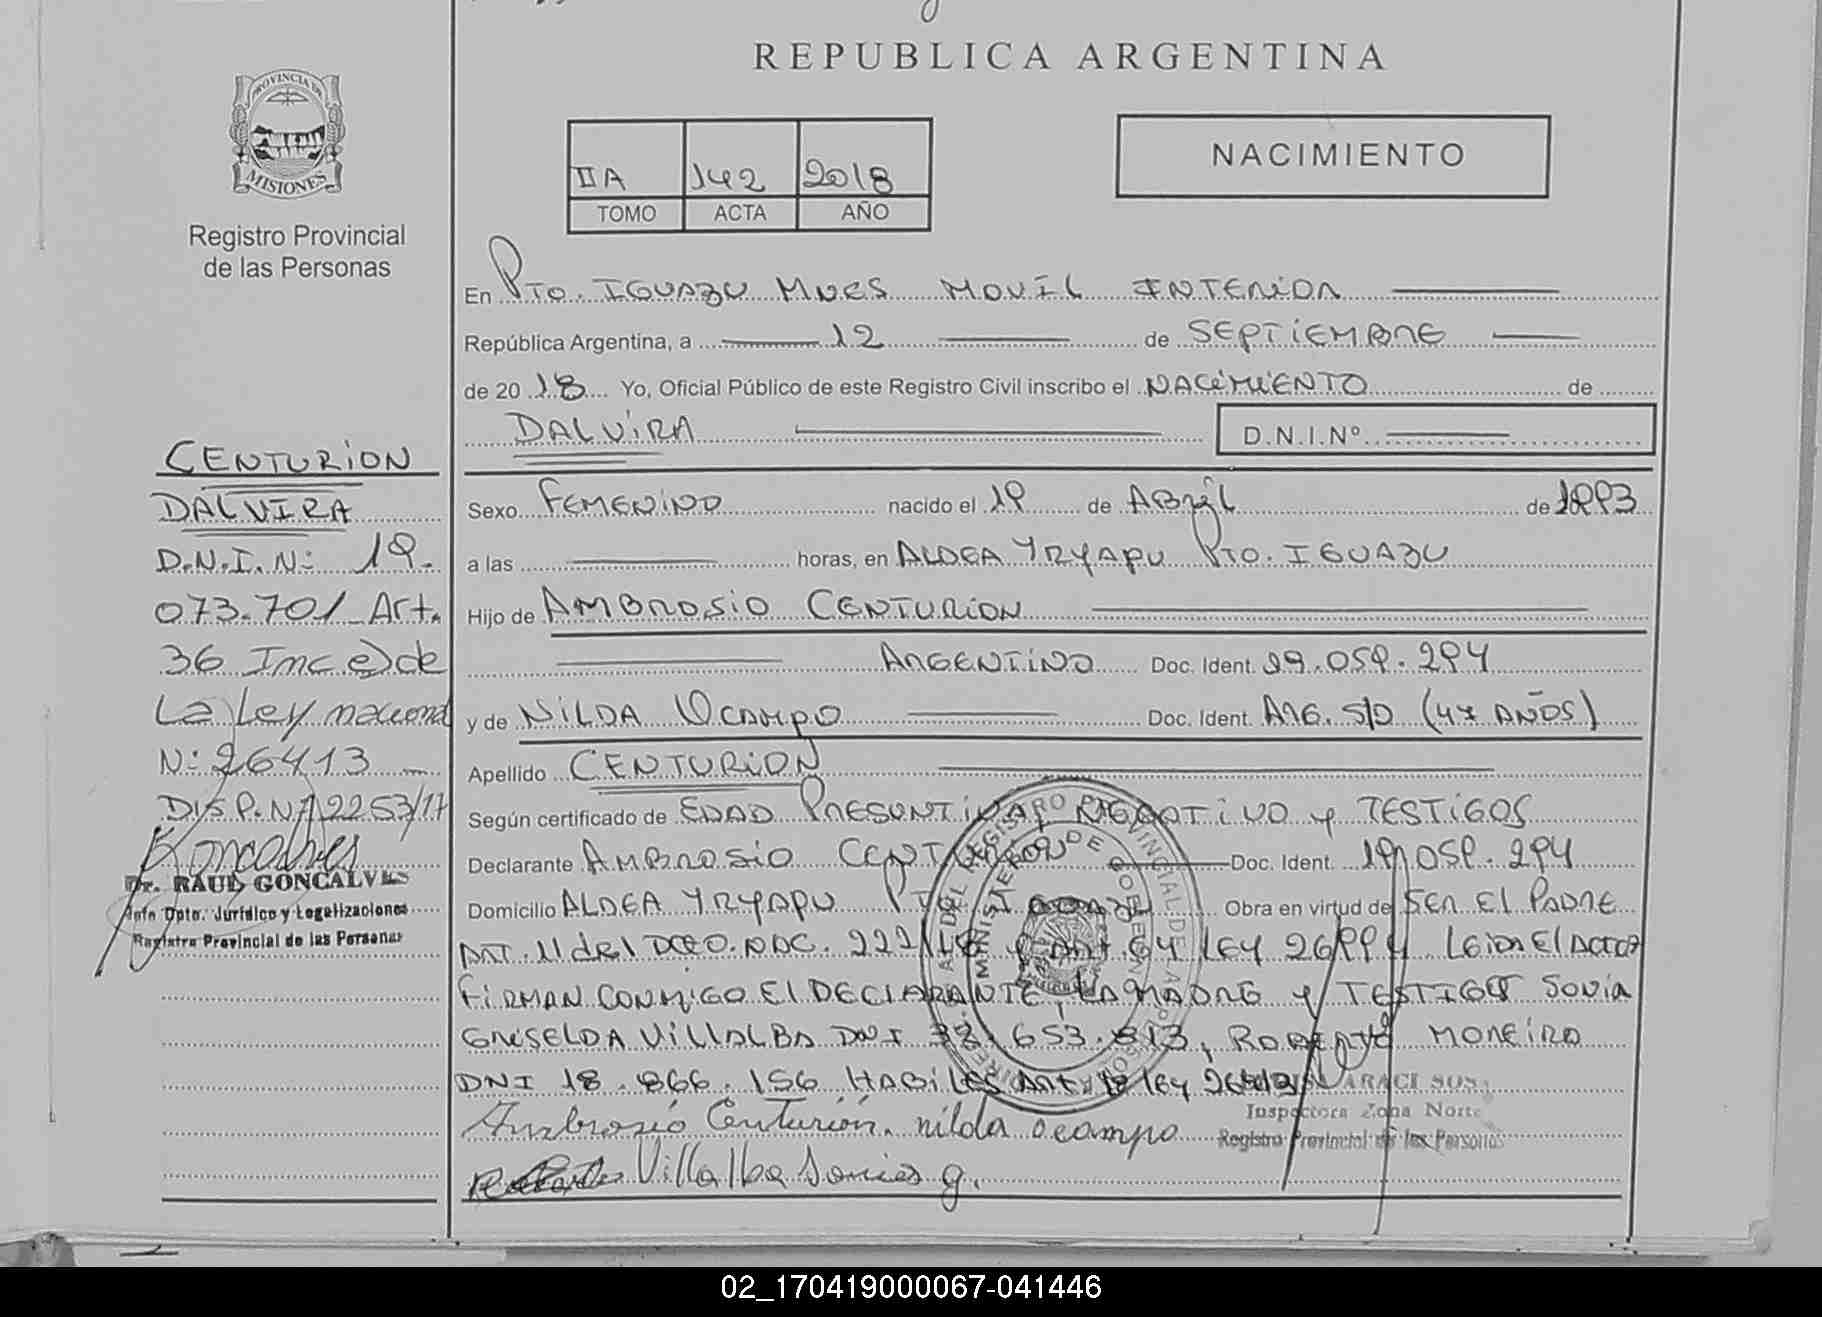 REPUBLICA ARGENTINA
PROVINCIA DE
MISIONES
Registro Provincial
de las Personas
IIA 142 2018
TOMO ACTA AÑO
NACIMIENTO
En Pto. IGUAZU MNES MOVIL INTERIOR
República Argentina, a 12 de SEPTIEMBRE
de 20 18 Yo, Oficial Público de este Registro Civil inscribo el NACIMIENTO de
DALVIRA D.N.I.Nº
CENTURION
DALVIRA
D.N.I.N: 19.
073.701 Art.
36 Inc e) de
La Ley nacional
N: 26413
DISP. Nº 2253/17
Goncalves
Dr. RAUL GONCALVES
Jefe Dpto. Jurídico y Legalizaciones
Registro Provincial de las Personas
Sexo FEMENINO nacido el 19 de Abril de 1993
a las horas, en ALDEA YRYAPU Pto. IGUAZU
Hijo de AMBROSIO CENTURION
ARGENTINO Doc. Ident. 19.059.294
y de NILDA OCAMPO Doc. Ident. ARG. S/D (47 AÑOS)
Apellido CENTURION
Según certificado de EDAD PRESUNTIVA, NEGATIVO y TESTIGOS
Declarante AMBROSIO CENTURION Doc. Ident. 19.059.294
Domicilio ALDEA YRYAPU Pto IGUAZU Obra en virtud de SER El PADRE
ART. 11 del DCTO. NAC. 222/18 y ART. 64 LEY 26994 LEIDA El ACTA
FIRMAN CONMIGO El DECLARANTE, LA MADRE y TESTIGOS SONIA
GRISELDA VILLALBA DNI 38.653.813, ROBERTO MOREIRA
DNI 18.866.156 HABILES ART. ley 26413
Ambrosio Centurión. nilda ocampo
Villalba Sonia g.
ARACI SOSA
Inspectora Zona Norte
Registro Provincial de las Personas
02_170419000067-041446